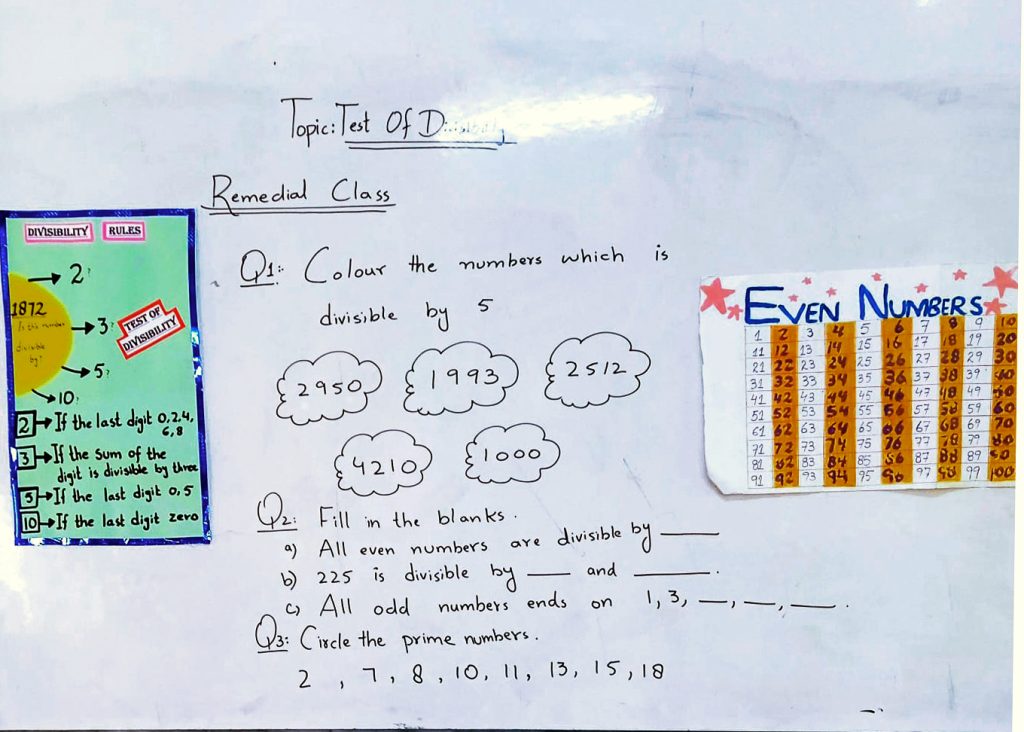 Topic: Test Of D
Remedial Class
DIVISIBILITY RULES
2?
1872
Is this number
divisible
by?
3?
TEST OF
DIVISIBILITY
5?
10?
2 → If the last digit 0,2,4,
6,8
3 → If the sum of the
digit is divisible by three
5 → If the last digit 0,5
10 → If the last digit zero
Q1: Colour the numbers which is
divisible by 5
2950 1993 2512
4210 1000
Q2: Fill in the blanks.
a) All even numbers are divisible by ___
b) 225 is divisible by ___ and ___.
c) All odd numbers ends on 1, 3, __, __, __.
Q3: Circle the prime numbers.
2, 7, 8, 10, 11, 13, 15, 18
EVEN NUMBERS
1 2 3 4 5 6 7 8 9 10
11 12 13 14 15 16 17 18 19 20
21 22 23 24 25 26 27 28 29 30
31 32 33 34 35 36 37 38 39 40
41 42 43 44 45 46 47 48 49 50
51 52 53 54 55 56 57 58 59 60
61 62 63 64 65 66 67 68 69 70
71 72 73 74 75 76 77 78 79 80
81 82 83 84 85 86 87 88 89 90
91 92 93 94 95 96 97 98 99 100